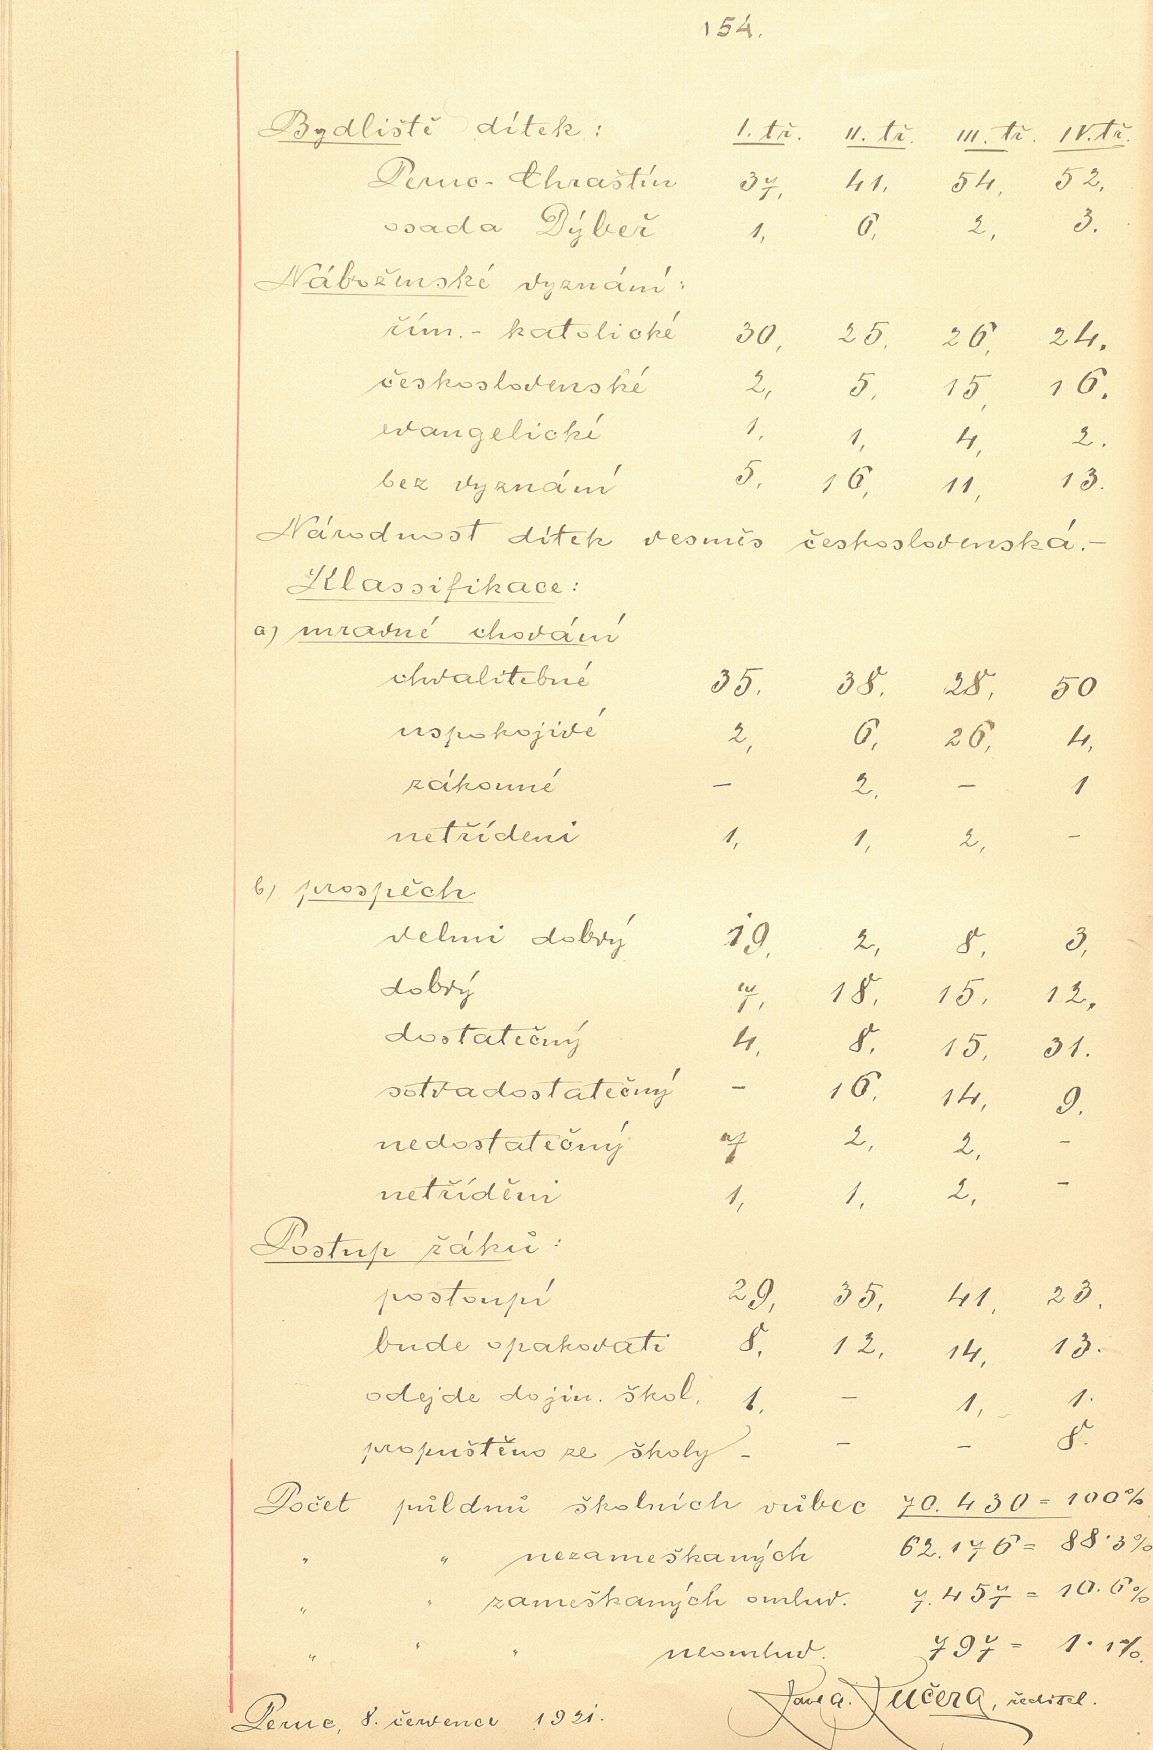 154.
Bydliště dítek: I. tř. II. tř. III. tř. IV. tř.
Peruc-Chrastín 37, 41, 54, 52,
osada Dýbeř 1, 6, 2, 3.
Náboženské vyznání:
řím.- katolické 30, 25, 26, 24.
československé 2, 5, 15, 16.
evangelické 1, 1, 4, 2.
bez vyznání 5, 16, 11, 13.
Národnost dítek vesměs československá.-
Klassifikace:
a) mravné chování
chvalitebné 35. 38. 28, 50
uspokojivé 2, 6, 26, 4,
zákonné - 2, - 1
netřídeni 1, 1, 2, -
b) prospěch
velmi dobrý 19. 2, 8, 3,
dobrý 7, 18, 15, 12,
dostatečný 4, 8, 15, 31.
sotvadostatečný - 16, 14, 9.
nedostatečný 7 2, 2, -
netříděni 1, 1, 2, -
Postup žáků:
postoupí 29, 35, 41, 23.
bude opakovati 8, 12, 14, 13.
odejde do jin. škol. 1, - 1, 1.
propuštěno ze školy - - - 8.
Počet půldnů školních vůbec 70.430 = 100%
" " nezameškaných 62.176 = 88·3%
" " zameškaných omluv. 7.457 = 10.6%
" " " neomluv. 797 = 1·1%.
Kučera, ředitel.
Peruc, 8. července 1921.